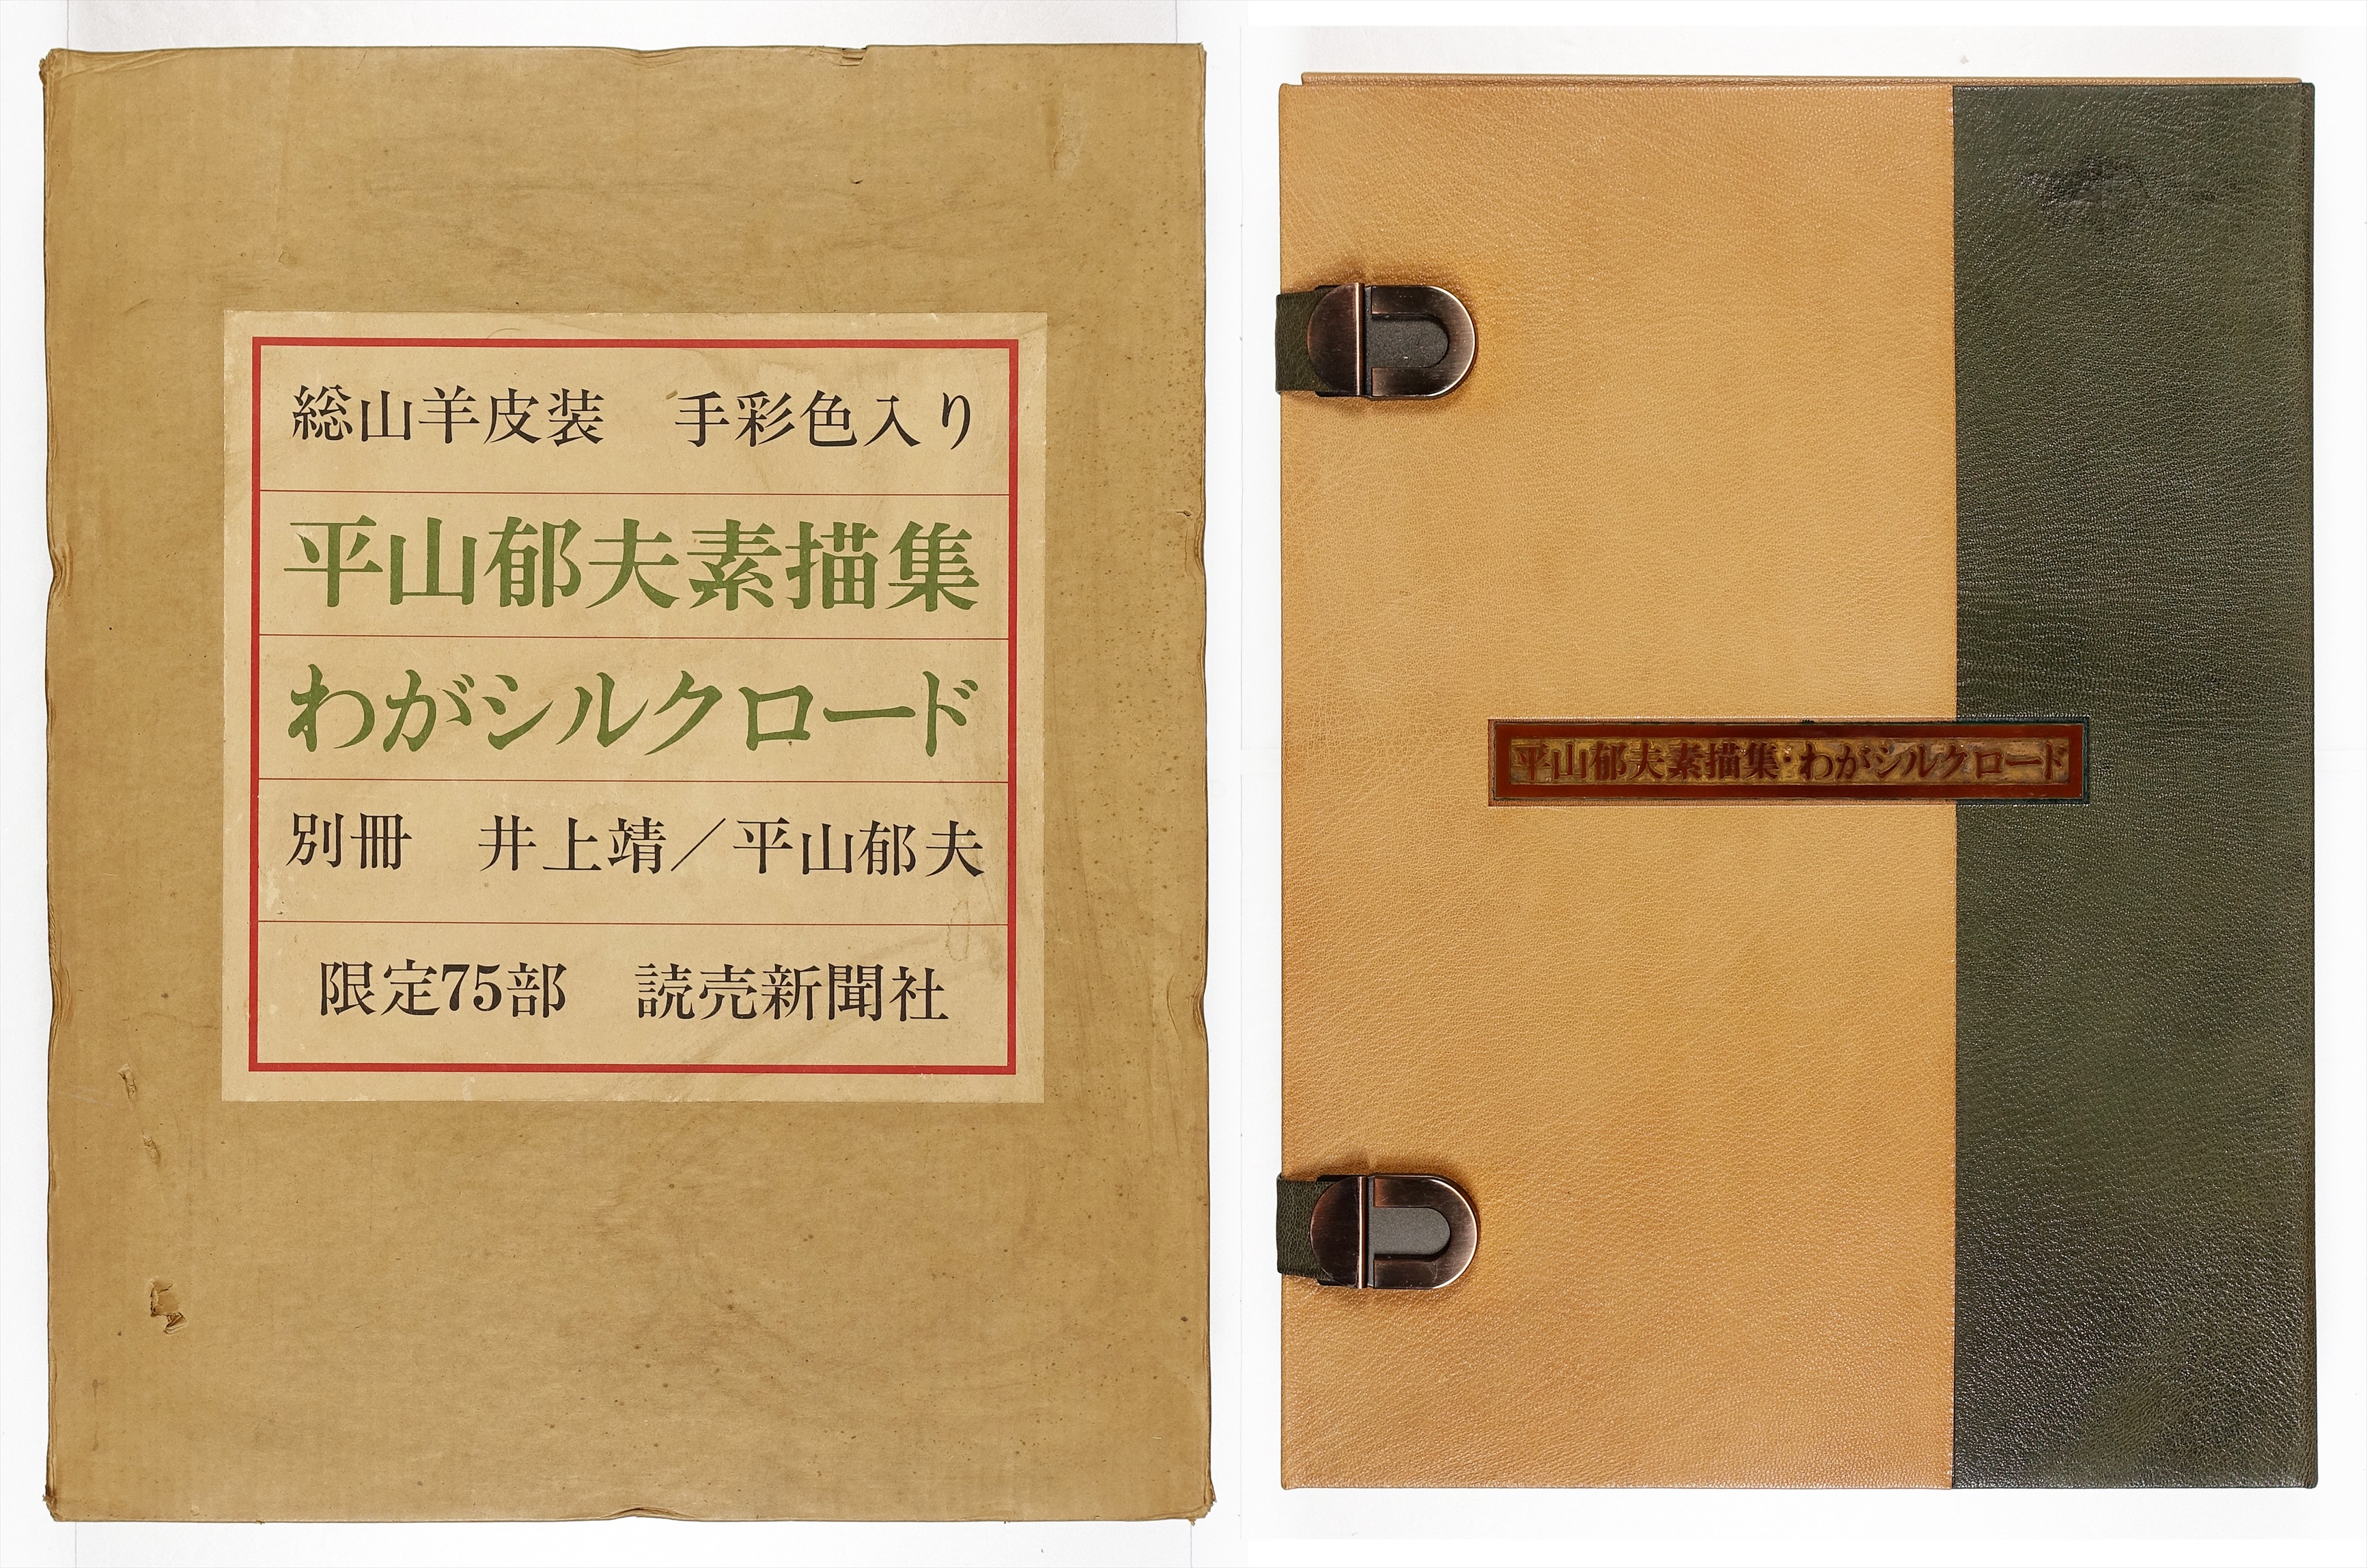 総山羊皮装　手彩色入り
平山郁夫素描集
わがシルクロード
別冊　井上靖／平山郁夫
限定75部　読売新聞社
平山郁夫素描集・わがシルクロード